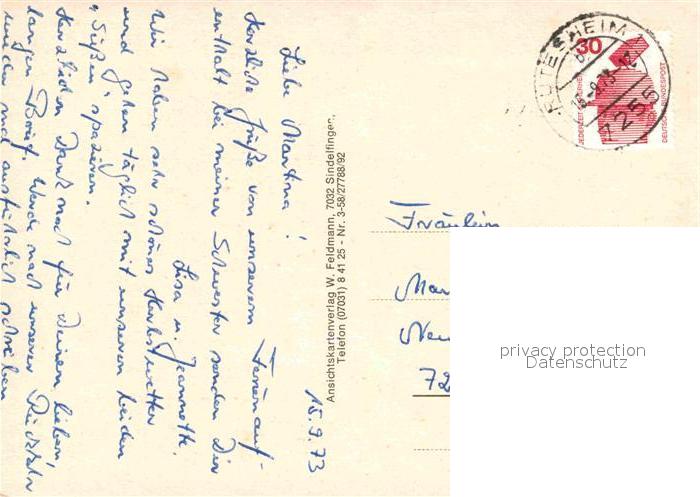 15.9.73
Liebe Martina!
Herzliche Grüße von unserem Ferienauf-
enthalt bei meiner Schwester senden Dir
Lisa u. Jeannette.
Wir haben sehr schönes Herbstwetter
und gehen täglich mit unseren beiden
"Süßen" spazieren.
Herzlichen Dank noch für Deinen lieben,
langen Brief. Werde nach unserer Rückkehr
wieder mal ausführlich schreiben
Ansichtskartenverlag W. Feldmann, 7032 Sindelfingen,
Telefon (07031) 8 41 25 - Nr. 3-58/27788/92
RUTESHEIM
15.-9.73-12
7255
30
JEDERZEIT SICHERHEIT
DEUTSCHE BUNDESPOST
Fräulein
Mar
Neu
72
privacy protection
Datenschutz